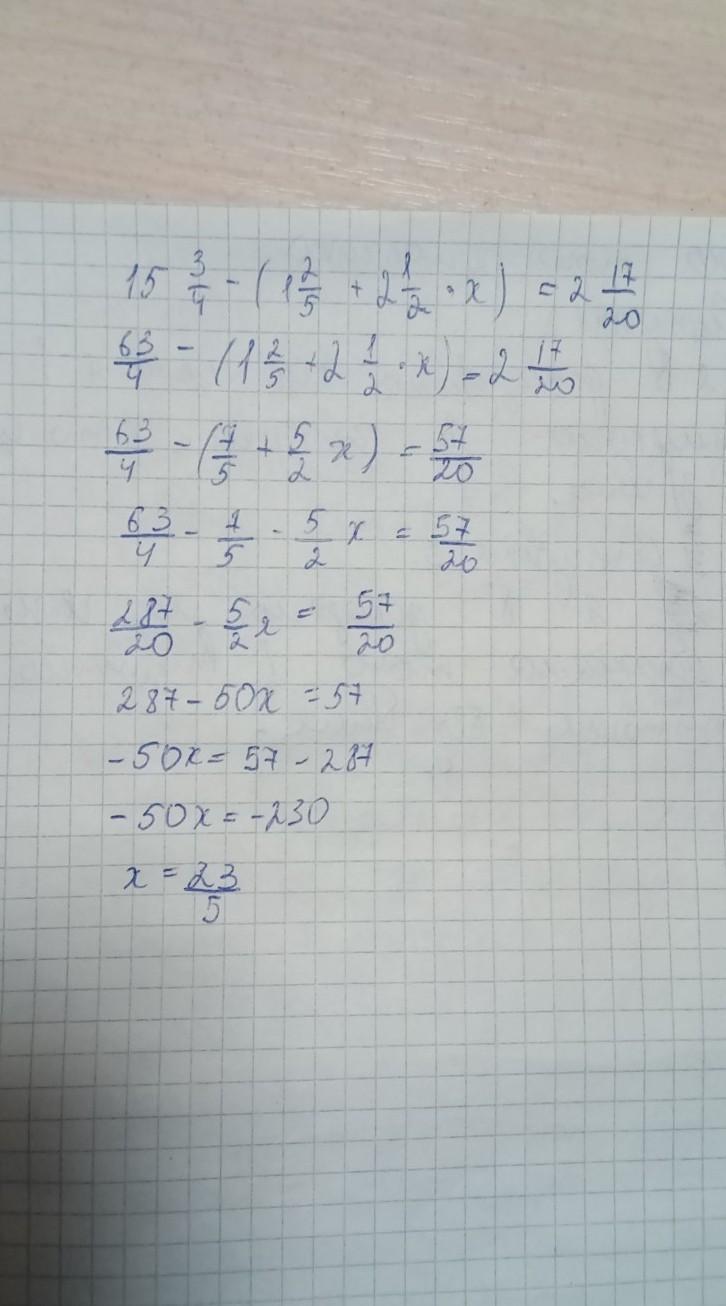 15 3/4 - (1 2/5 + 2 1/2 · x) = 2 17/20
63/4 - (1 2/5 + 2 1/2 · x) = 2 17/20
63/4 - (7/5 + 5/2 x) = 57/20
63/4 - 7/5 - 5/2 x = 57/20
287/20 - 5/2 x = 57/20
287 - 50x = 57
-50x = 57 - 287
-50x = -230
x = 23/5